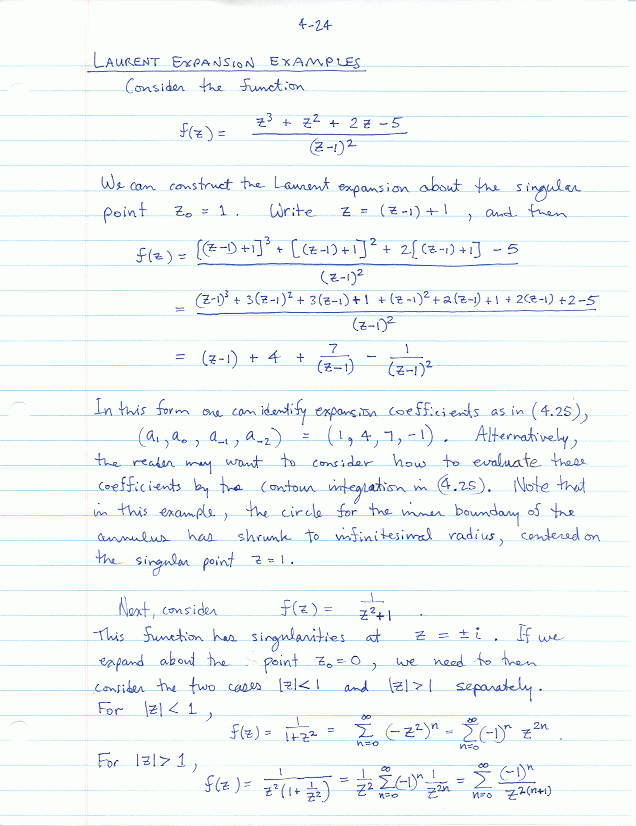 4-24
LAURENT EXPANSION EXAMPLES
Consider the function
f(z) = (z³ + z² + 2z - 5) / (z-1)²
We can construct the Laurent expansion about the singular
point z₀ = 1. Write z = (z-1) + 1, and then
f(z) = ([(z-1)+1]³ + [(z-1)+1]² + 2[(z-1)+1] - 5) / (z-1)²
= ((z-1)³ + 3(z-1)² + 3(z-1) + 1 + (z-1)² + 2(z-1) + 1 + 2(z-1) + 2 - 5) / (z-1)²
= (z-1) + 4 + 7/(z-1) - 1/(z-1)²
In this form one can identify expansion coefficients as in (4.25),
(a₁, a₀, a₋₁, a₋₂) = (1, 4, 7, -1). Alternatively,
the reader may want to consider how to evaluate these
coefficients by the contour integration in (4.25). Note that
in this example, the circle for the inner boundary of the
annulus has shrunk to infinitesimal radius, centered on
the singular point z = 1.
Next, consider f(z) = 1/(z²+1).
This function has singularities at z = ± i. If we
expand about the point z₀ = 0, we need to then
consider the two cases |z|<1 and |z|>1 separately.
For |z| < 1,
f(z) = 1/(1+z²) = ∑_{n=0}^{∞} (-z²)ⁿ = ∑_{n=0}^{∞} (-1)ⁿ z²ⁿ.
For |z| > 1,
f(z) = 1/(z²(1 + 1/z²)) = 1/z² ∑_{n=0}^{∞} (-1)ⁿ 1/z²ⁿ = ∑_{n=0}^{∞} (-1)ⁿ / z^{2(n+1)}